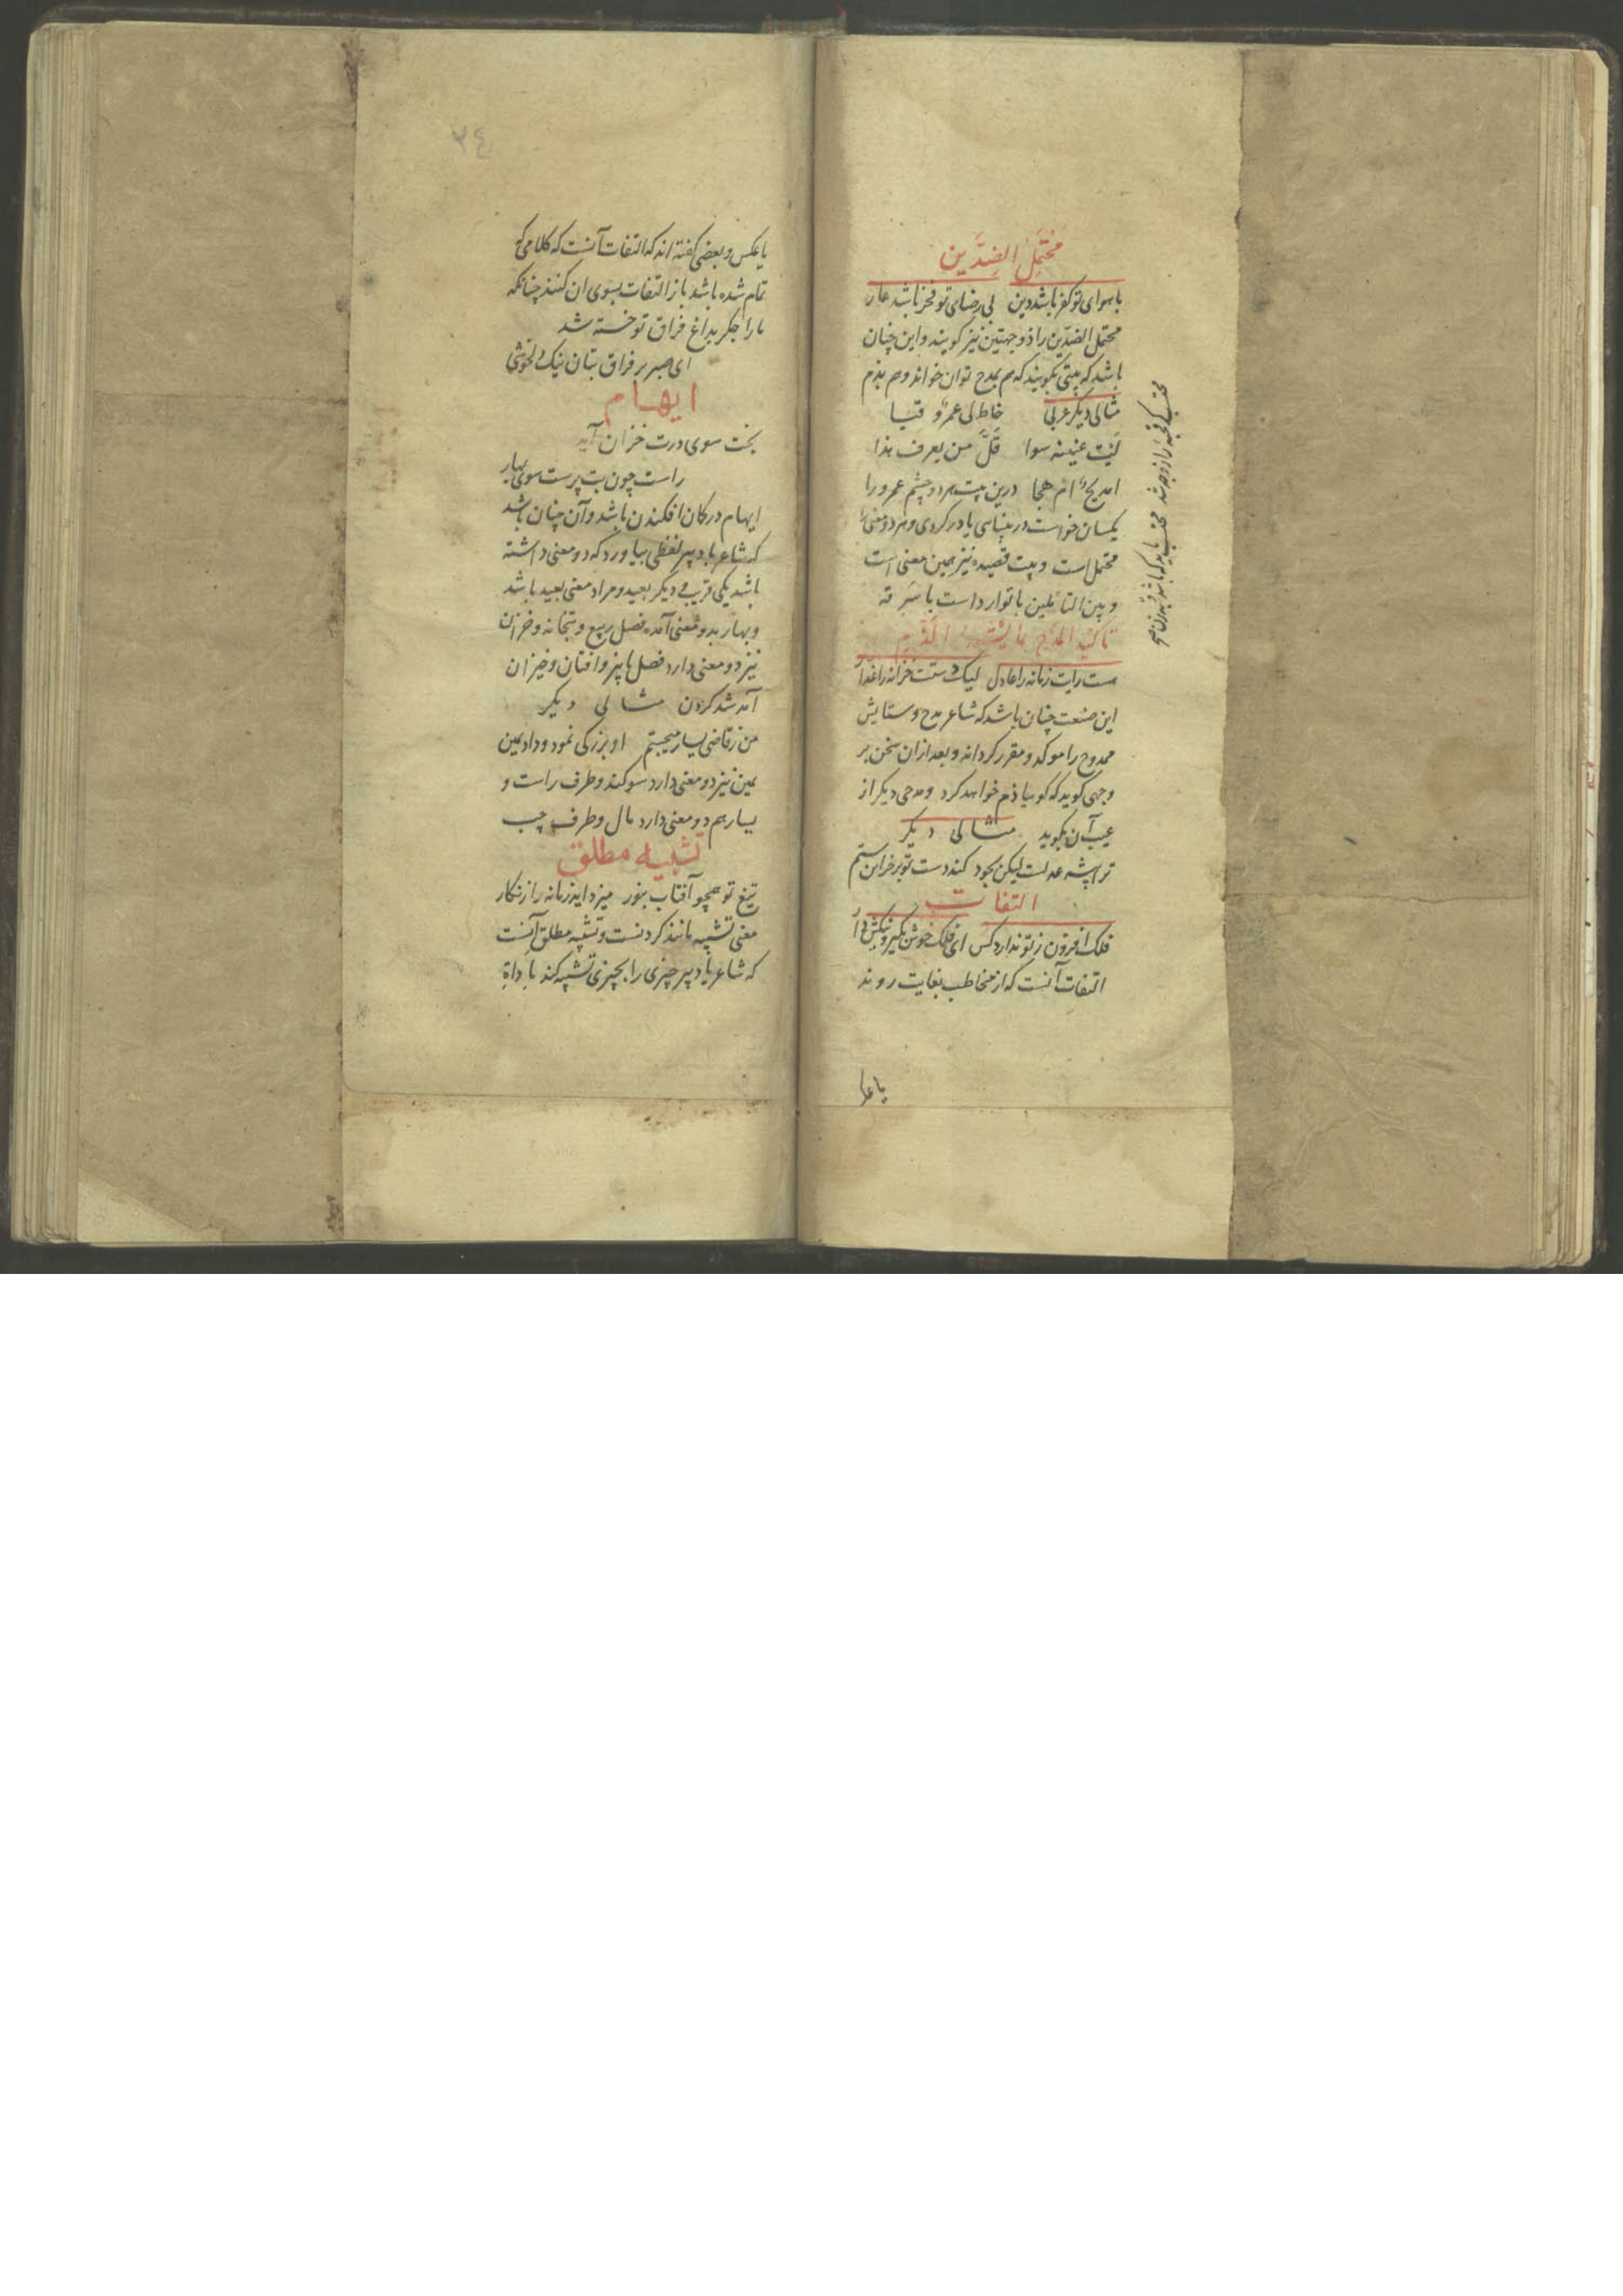 محتمل الضدین
با هوای تو کفر باشد دین بی رضای تو فخر باشد عار
محتمل الضدین را ذو جهتین نیز کویند و این چنان
باشد که بیتی بکویند که هم بمدح توان خواند و هم بذم
مثالی دیکر عربی خاط لی عمرو قبا
لیت عینیه سوا قل من یعرف هذا
امدیح ام هجا درین بیت هر دو چشم عمرو را
یکسان خواست در بینایی یا در کوری و هر دو معنی را
محتمل است و بیت قصیده نیز همین معنی است
و بین القائلین یا توارد است یا سرقه
تاکید المدح بما یشبه الذم
هست رایت زمانه را عادل لیک دستت خزانه را غدار
این صنعت چنان باشد که شاعر مدح و ستایش
ممدوح را موکد و مقرر کرداند و بعد ازان سخن بر
وجهی کوید که کویا ذم خواهد کرد و مدحی دیکر از
عیب آن بکوید مثالی دیکر
ترا پیشه عدلست لیکن بجود کند دست تو بر خزاین ستم
التفات
فلک افزون ز تو ندارد کس ای فلک خوش بکیر و نیکش دار
التفات آنست که از مخاطب بغایت روند
یا عکس
محتسب
۲٤
یا عکس و بعضی کفته اند که التفات آنست که کلامی که
تمام شده باشد باز التفات بسوی ان کنند چنانکه
ما را جکر بداغ فراق تو خسته شد
ای صبر بر فراق بتان نیک دلخوشی
ایهام
بخت سوی درت خزان آید
راست چون بت پرست سوی بهار
ایهام در کمان افکندن باشد و آن چنان باشد
که شاعر یا دبیر لفظی بیاورد که دو معنی داشته
باشد یکی قریب و دیکر بعید و مراد معنی بعید باشد
و بهار بدو معنی آمده فصل ربیع و بتخانه و خزان
نیز دو معنی دارد فصل پاییز و افتان و خیزان
آمد شد کردن مثالی دیکر
من ز قاضی یسار میجستم او بزرکی نمود و داد یمین
یمین نیز دو معنی دارد سوکند و طرف راست و
یسار هم دو معنی دارد مال و طرف چپ
تشبیه مطلق
تیغ تو همچو آفتاب بنور میزداید زمانه را زنکار
معنی تشبیه مانند کردنست و تشبیه مطلق آنست
که شاعر یا دبیر چیزی را بچیزی تشبیه کند با داة